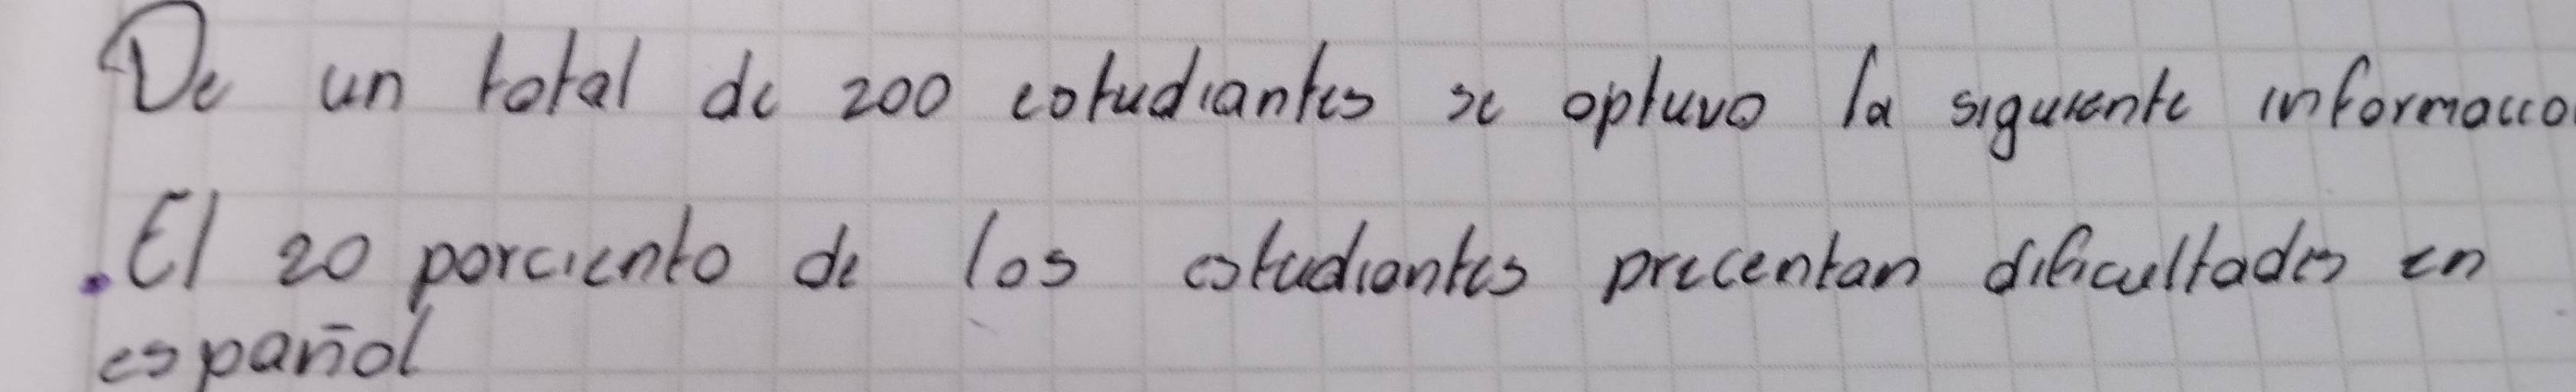 De un total de 200 estudiantes se optuvo la siguiente informacio
.El 20 porciento de los estudiantes precentan dificultades en
español